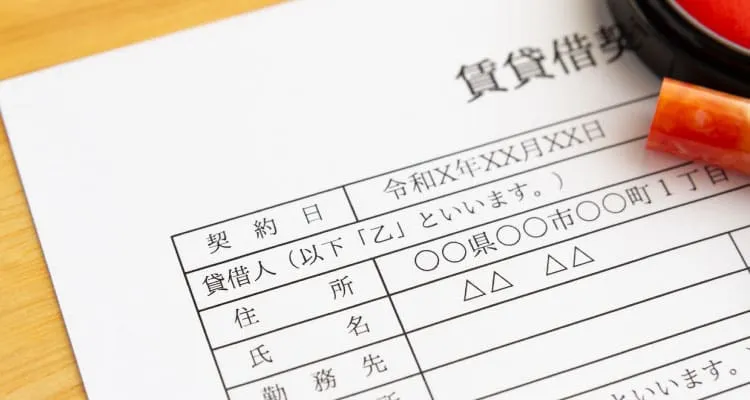 賃貸借契
契約日 令和X年XX月XX日
貸借人（以下「乙」といいます。）
住所 〇〇県〇〇市〇〇町１丁目
氏名 △△ △△
勤務先
所
といいます。）